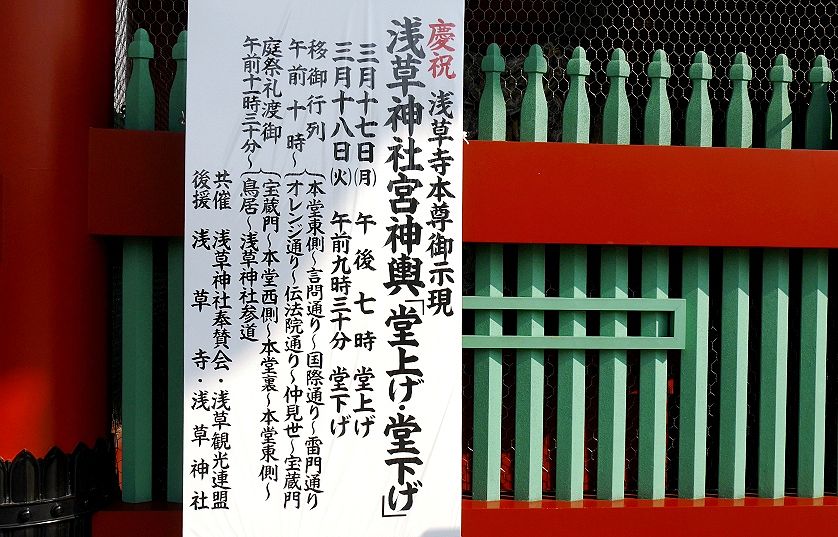 慶祝 浅草寺本尊御示現
浅草神社宮神輿「堂上げ・堂下げ」
三月十七日(月) 午後七時 堂上げ
三月十八日(火) 午前九時三十分 堂下げ
移御行列 本堂東側～言問通り～国際通り～雷門通り
午前十時～ オレンジ通り～伝法院通り～仲見世～宝蔵門
庭祭礼渡御 宝蔵門～本堂西側～本堂裏～本堂東側～
午前十時三十分～ 鳥居～浅草神社参道
共催 浅草神社奉賛会・浅草観光連盟
後援 浅草寺・浅草神社